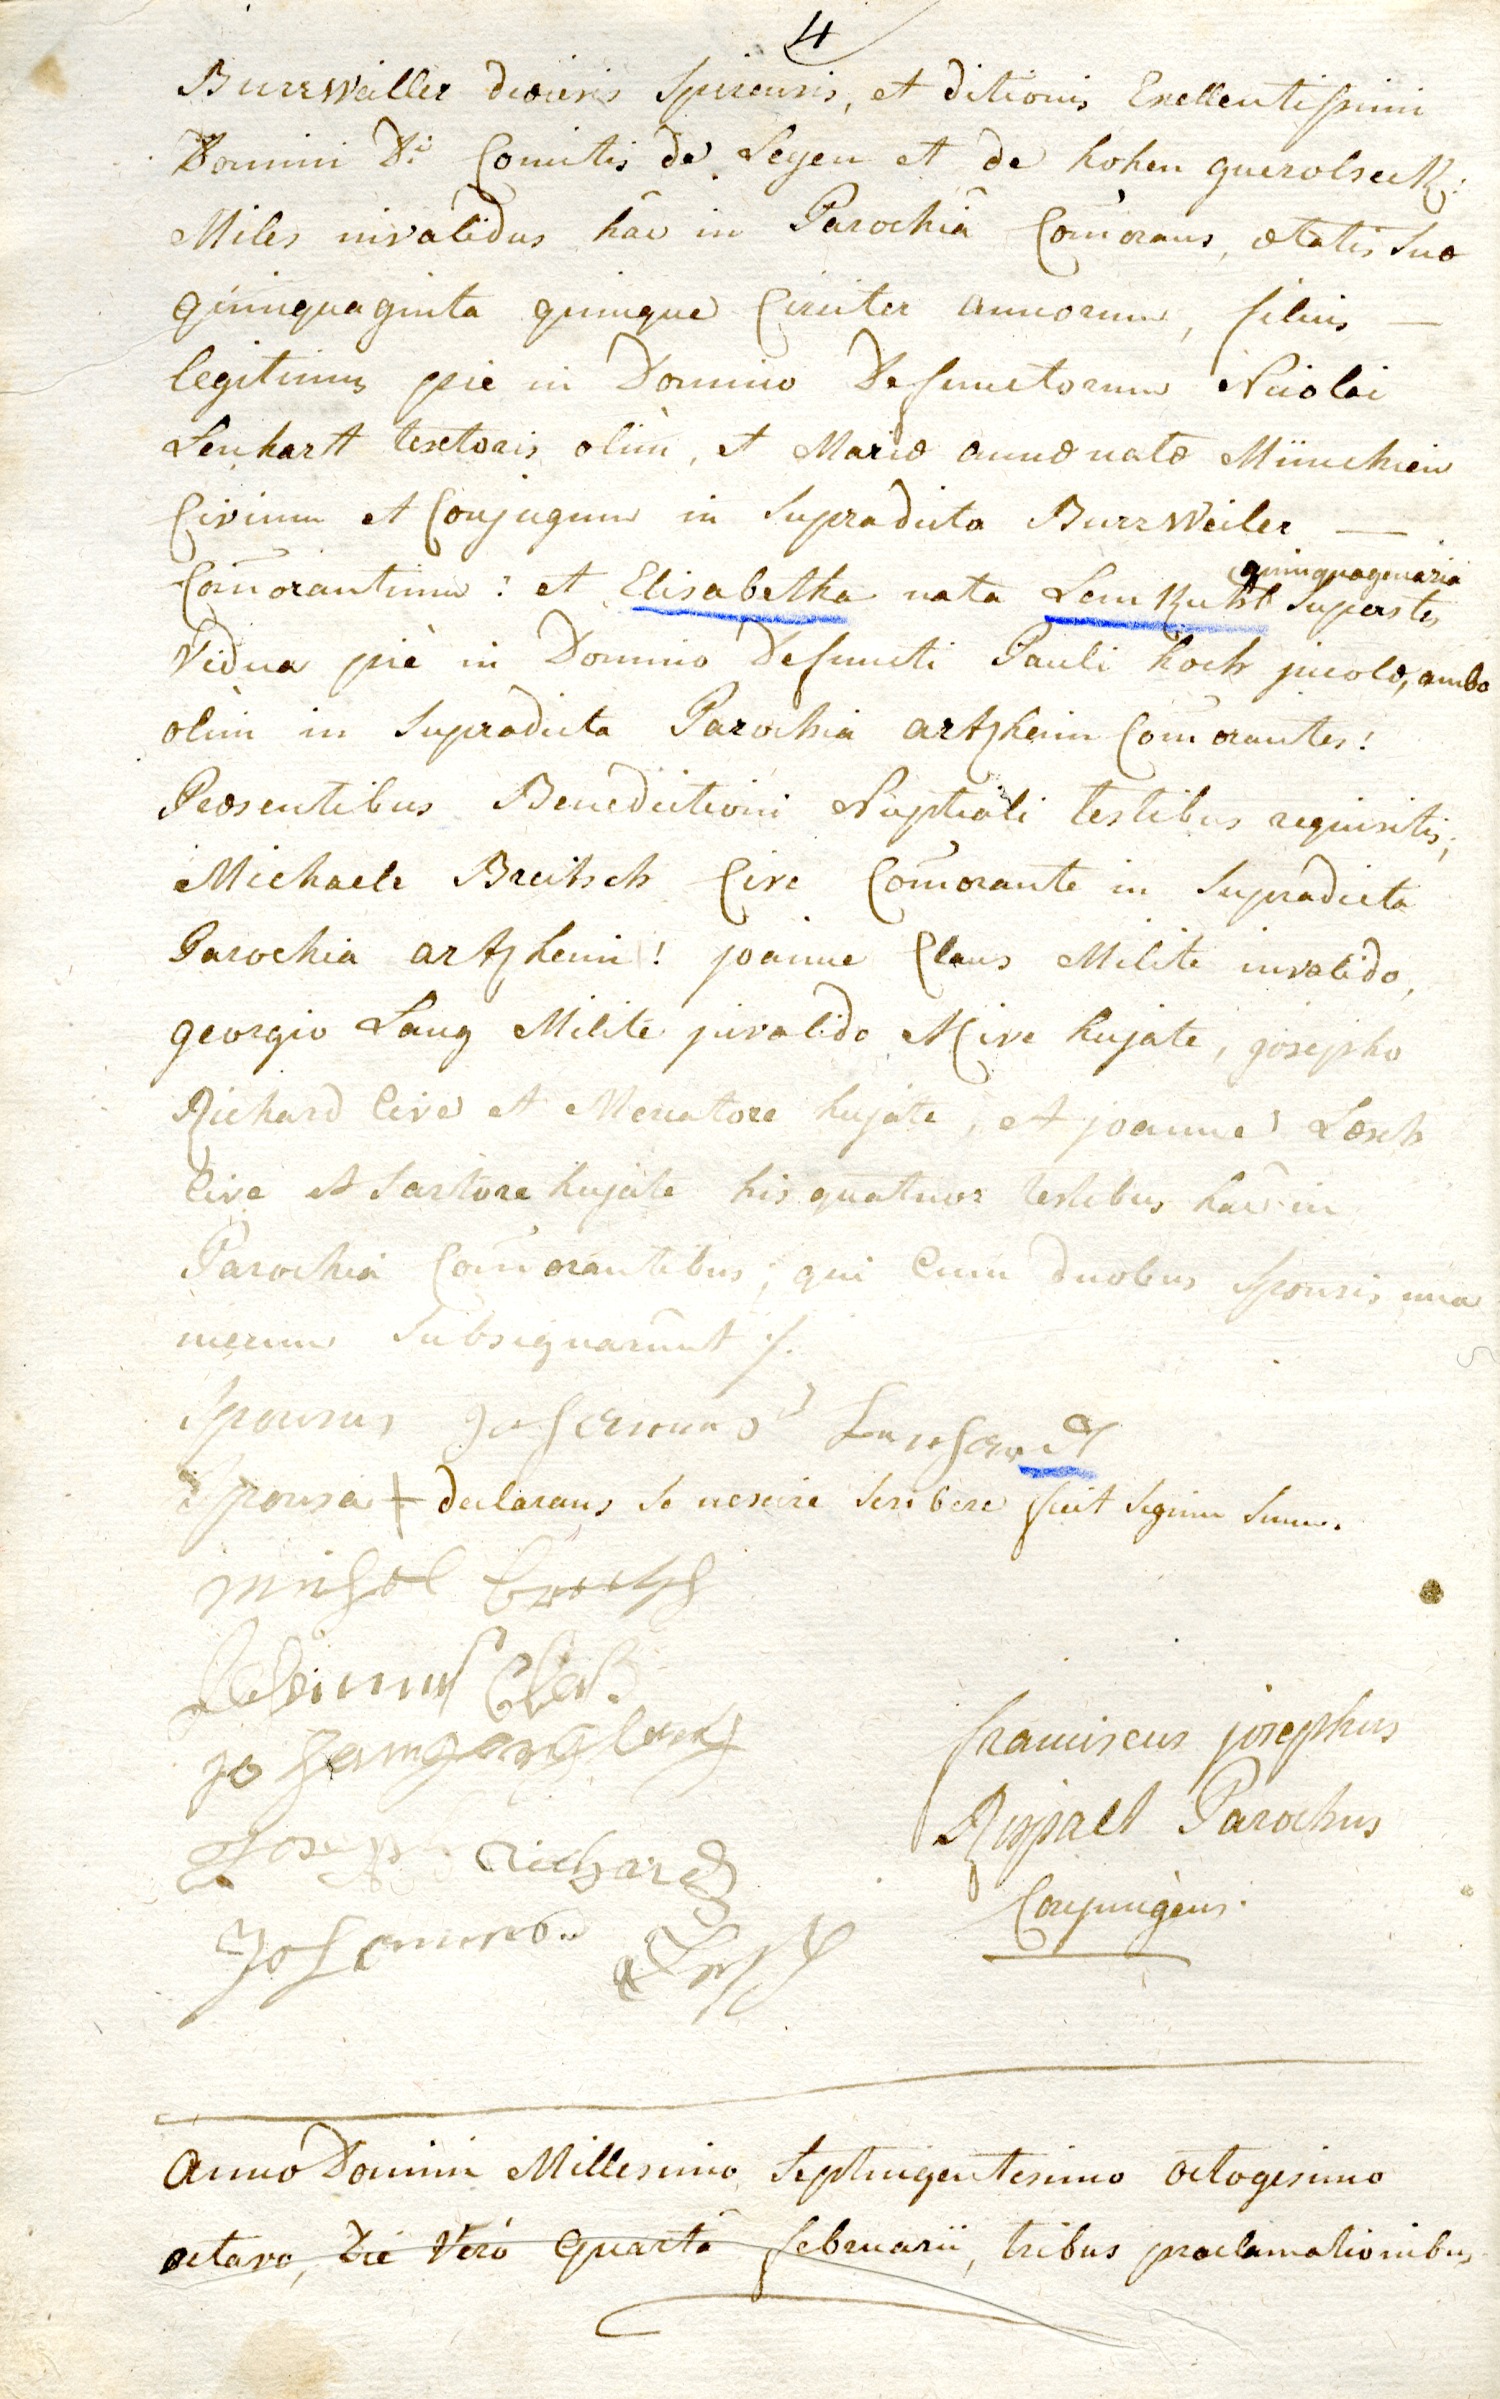 4
Burrweiller diœcesis Spirensis, et ditionis Exellentissimi
Domini D.i Comitis de Leyen et de hohen gueroldseck:
Miles invalidus hâc in Parochiâ Com̄orans, ætatis suæ
quinquaginta quinque Circiter annorum, filius —
legitimus piè in Domino Defunctorum Nicolai
Lenhartt textoris olim, et Mariæ annæ natæ München
Civium et Conjugum in supradicta Burrweiler —
Com̄orantium: et Elisabetha nata Lemkuhl quinquagenaria superstes
Vidua piè in Domino Defuncti Pauli Koch incolæ, ambo
olim in supradicta Parochia artzheim Com̄orantes!
Præsentibus Benedictioni Nuptiali testibus requisitis;
Michaele Breitsch Cive Com̄orante in supradicta
Parochia artzheim! joanne Claus Milite invalido,
georgio Lang Milite invalido et Cive hujate, josepho
Richard Cive et Mercatore hujate, et joanne Lœsch
Cive et Sartore hujate his quatuor testibus hâc in
Parochiâ Com̄orantibus; qui Cum duobus sponsis una
mecum subsignarunt ⁒.
Sponsus Johannes Lenhardt
Sponsa + declarans se nescire scribere fecit signum suum.
Michel
Johannes Claß
Johann georg lang
franciscus josephus
Joseph Richard
Parochus
Johannes Lesch
Conjungens.
Anno Domini Millesimo Septingentesimo octogesimo
octavo, Die Verò Quartâ februarii, tribus proclamationibus